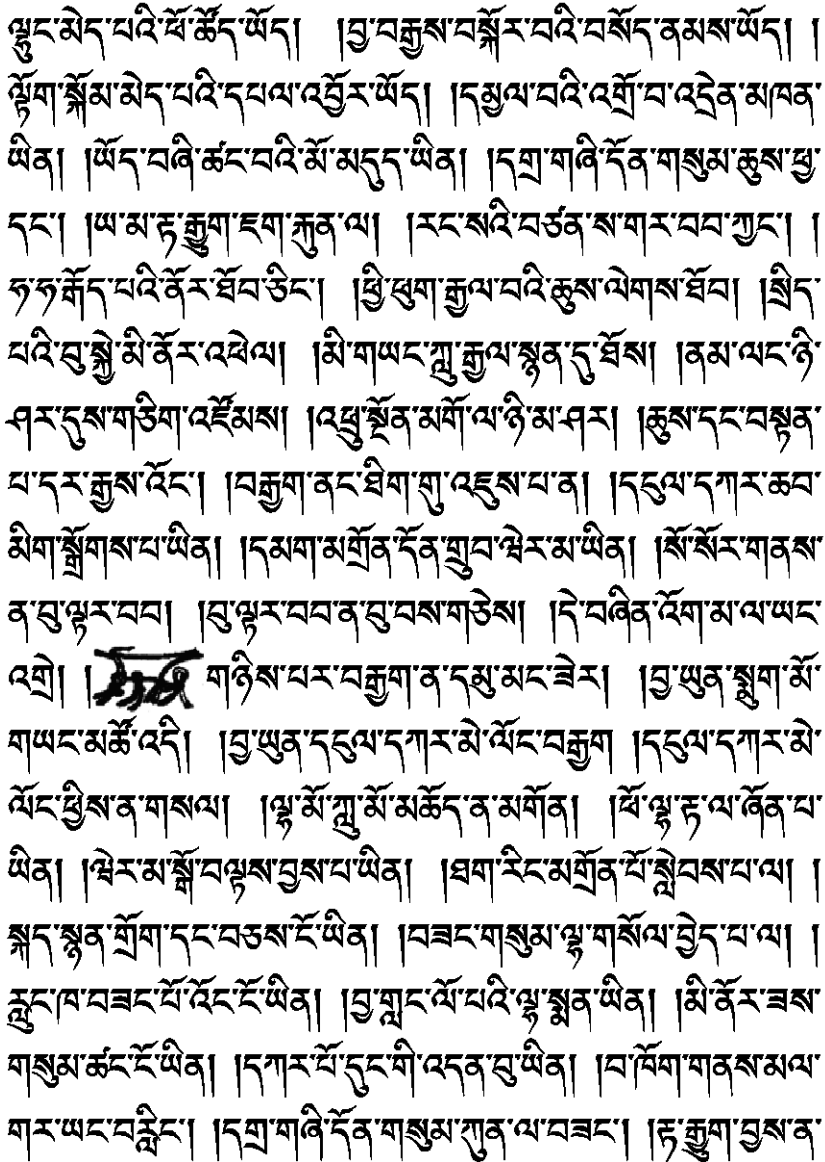 ལྷུང་མེད་པའི་ཕོ་ཚོད་ཡོད། །བྱ་བརྒྱས་བསྐོར་བའི་བསོད་ནམས་ཡོད། །
ལྟོག་སྐོམ་མེད་པའི་དཔལ་འབྱོར་ཡོད། །དམྱལ་བའི་འགྲོ་བ་འདྲེན་མཁན་
ཡིན། །ཡོད་བཞི་ཚང་བའི་མོ་མདུད་ཡིན། །དགྲ་གཞི་དོན་གསུམ་ཆུས་ཕྱ་
དང༌། །ཡ་མ་རྟ་རྒྱུག་ཇག་རྐུན་ལ། །རང་སའི་བཙན་ས་གར་བབ་ཀྱང༌། །
ཧ་ཧ་རྒོད་པའི་ནོར་ཐོབ་ཅིང༌། །ཕྱི་ཕུག་རྒྱལ་བའི་ཆུས་ལེགས་ཐོབ། །སྲིད་
པའི་བུ་སྐྱེ་མི་ནོར་འཕེལ། །མི་གཡང་ཀླུ་རྒྱལ་སྙན་དུ་ཐོས། །ནམ་ལང་ཉི་
ཤར་དུས་གཅིག་འཛོམས། །འཕྲུ་སྔོན་མགོ་ལ་ཉི་མ་ཤར། །ཆུས་དང་བསྟན་
པ་དར་རྒྱས་འོང༌། །བརྒྱག་ནང་ཐིག་གུ་འཇུས་པ་ན། །དངུལ་དཀར་ཆབ་
མིག་སྒྲོགས་པ་ཡིན། །དམག་མགྲོན་དོན་གྲུབ་ལྕེར་མ་ཡིན། །སོ་སོར་གནས་
ན་བུ་ལྟར་བབ། །བུ་ལྟར་བབ་ན་བུ་བས་གཅེས། །དེ་བཞིན་འོག་མ་ལ་ཡང་
འགྲེ། ། གཉིས་པར་བརྒྱག་ན་དམུ་མང་ཟེར། །བྱ་ཡུན་སྨུག་མོ་
གཡང་མཚོ་འདི། །བྱ་ཡུན་དངུལ་དཀར་མེ་ལོང་བརྒྱག །དངུལ་དཀར་མེ་
ལོང་ཕྱིས་ན་གསལ། །ལྷ་མོ་ཀླུ་མོ་མཆོད་ན་མགོན། །ཕོ་ལྷ་རྟ་ལ་ཞོན་པ་
ཡིན། །ལྕེར་མ་སྒོ་བལྟས་བྱས་པ་ཡིན། །ཐག་རིང་མགྲོན་པོ་སླེབས་པ་ལ། །
སྐད་སྙན་གྲོག་དང་བཅས་ངོ་ཡིན། །བཟང་གསུམ་ལྷ་གསོལ་བྱེད་པ་ལ། །
རླུང་ཁ་བཟང་པོ་འོང་ངོ་ཡིན། །བྱ་གླང་ལོ་པའི་ལྷ་སྨན་ཡིན། །མི་ནོར་ཟས་
གསུམ་ཚང་ངོ་ཡིན། །དཀར་པོ་དུང་གི་འདན་བུ་ཡིན། །བ་ཁོག་གནས་མལ་
གར་ཡང་བརླིང༌། །དགྲ་གཞི་དོན་གསུམ་ཀུན་ལ་བཟང༌། །རྟ་རྒྱུག་བྱས་ན་